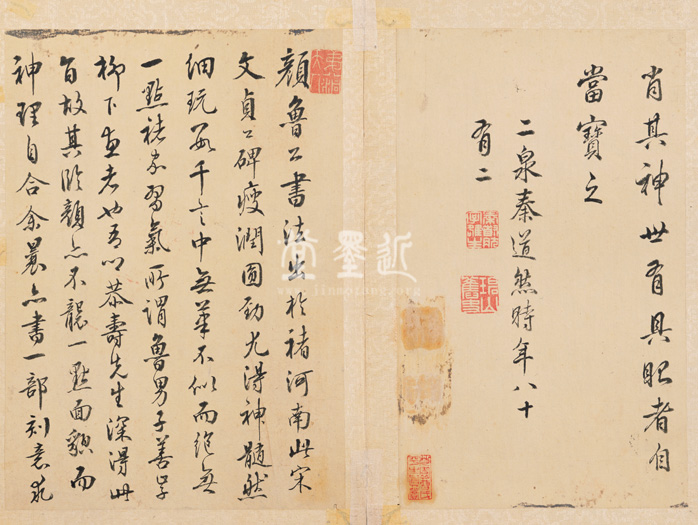 顏魯公書法出於褚河南此宋
文貞公碑瘦潤圓勁尤得神髓然
細玩數千言中無筆不似而絕無
一點褚家習氣所謂魯男子善學
柳下惠者也吾以恭壽先生深得此
旨故其臨顏亦不襲一點面貌而
神理自合余曩亦書一部刻意求
肖其神世有具眼者自
當寶之
二泉秦道然時年八十
有二
近墨堂
www.jinmotang.org